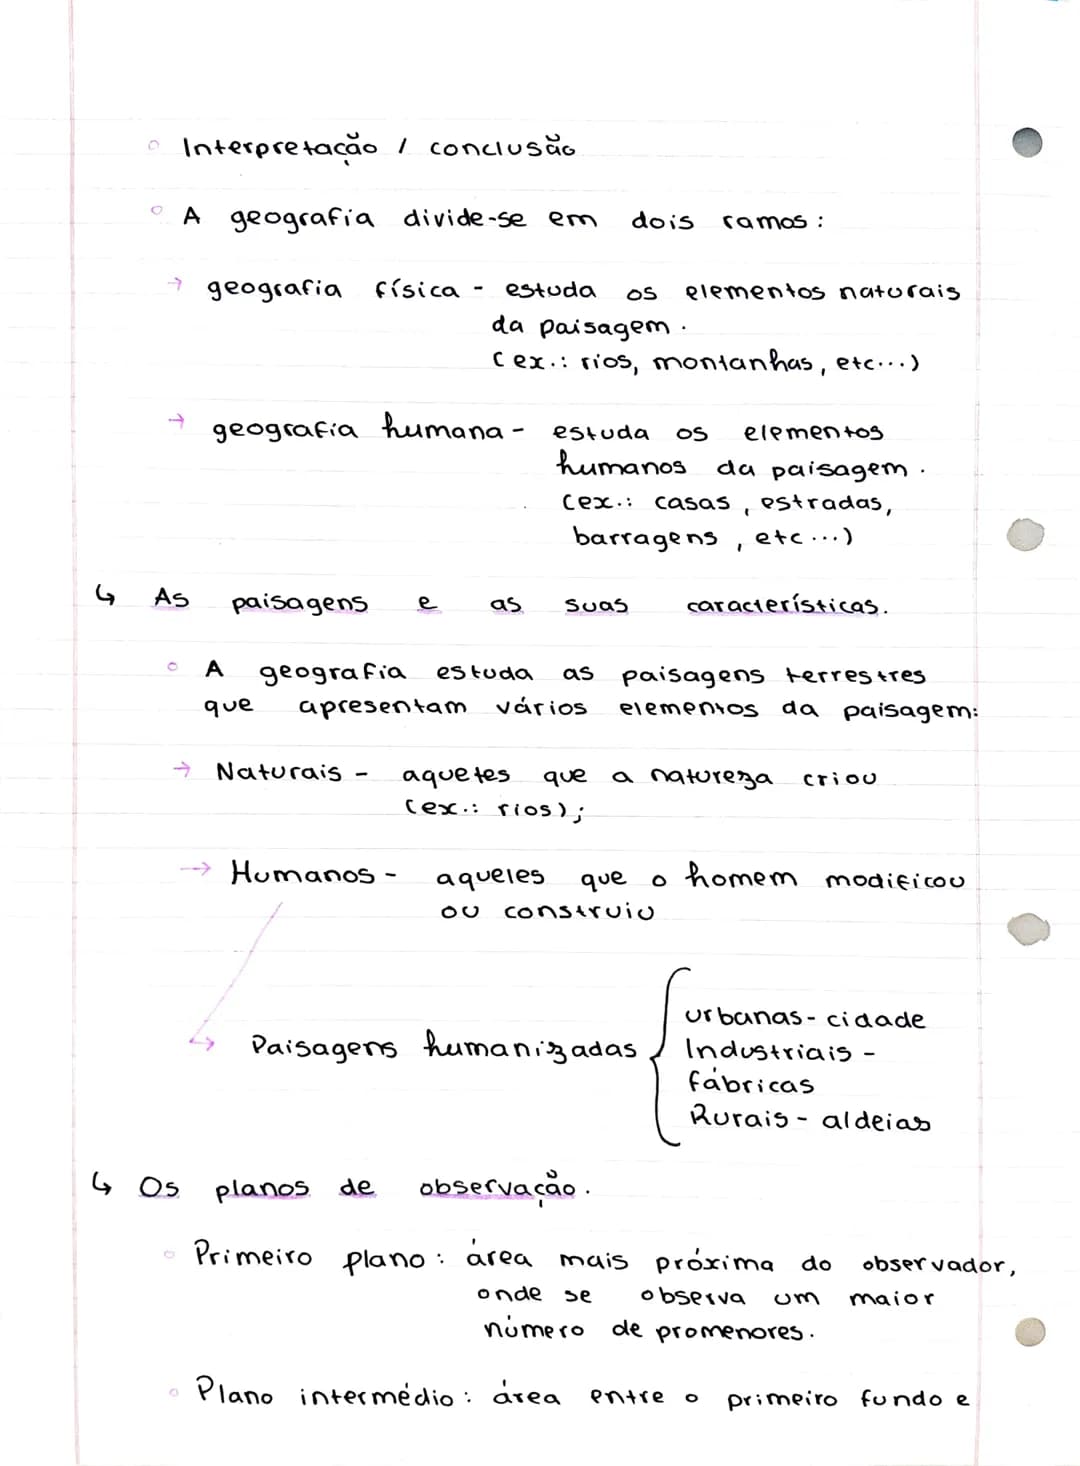 ◦ Interpretação / conclusão
◦ A geografia divide-se em dois ramos:
→ geografia física - estuda os elementos naturais
da paisagem.
(ex.: rios, montanhas, etc...)
→ geografia humana - estuda os elementos
humanos da paisagem.
(ex.: casas, estradas,
barragens, etc...)
↳ As paisagens e as suas características.
◦ A geografia estuda as paisagens terrestres
que apresentam vários elementos da paisagem:
→ Naturais - aquetes que a natureza criou
(ex.: rios);
→ Humanos - aqueles que o homem modificou
ou construiu
↳ Paisagens humanizadas {
urbanas - cidade
Industriais -
fábricas
Rurais - aldeias
↳ Os planos de observação.
◦ Primeiro plano: área mais próxima do observador,
onde se observa um maior
número de promenores.
◦ Plano intermédio: área entre o primeiro fundo e